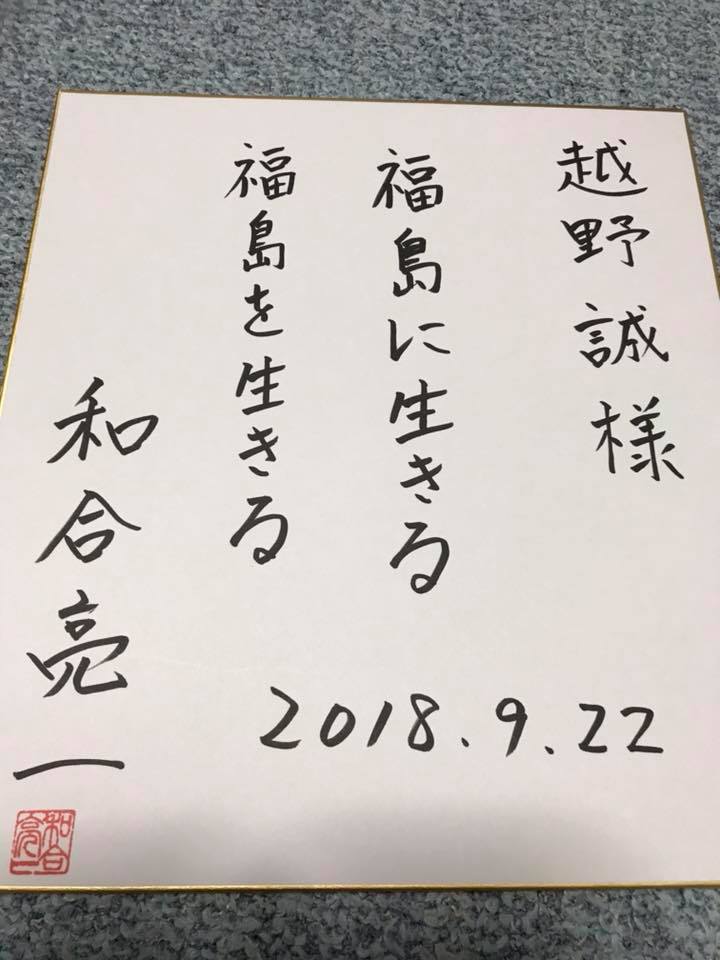 越野誠様
福島に生きる
福島を生きる
2018.9.22
和合亮一
和合亮一